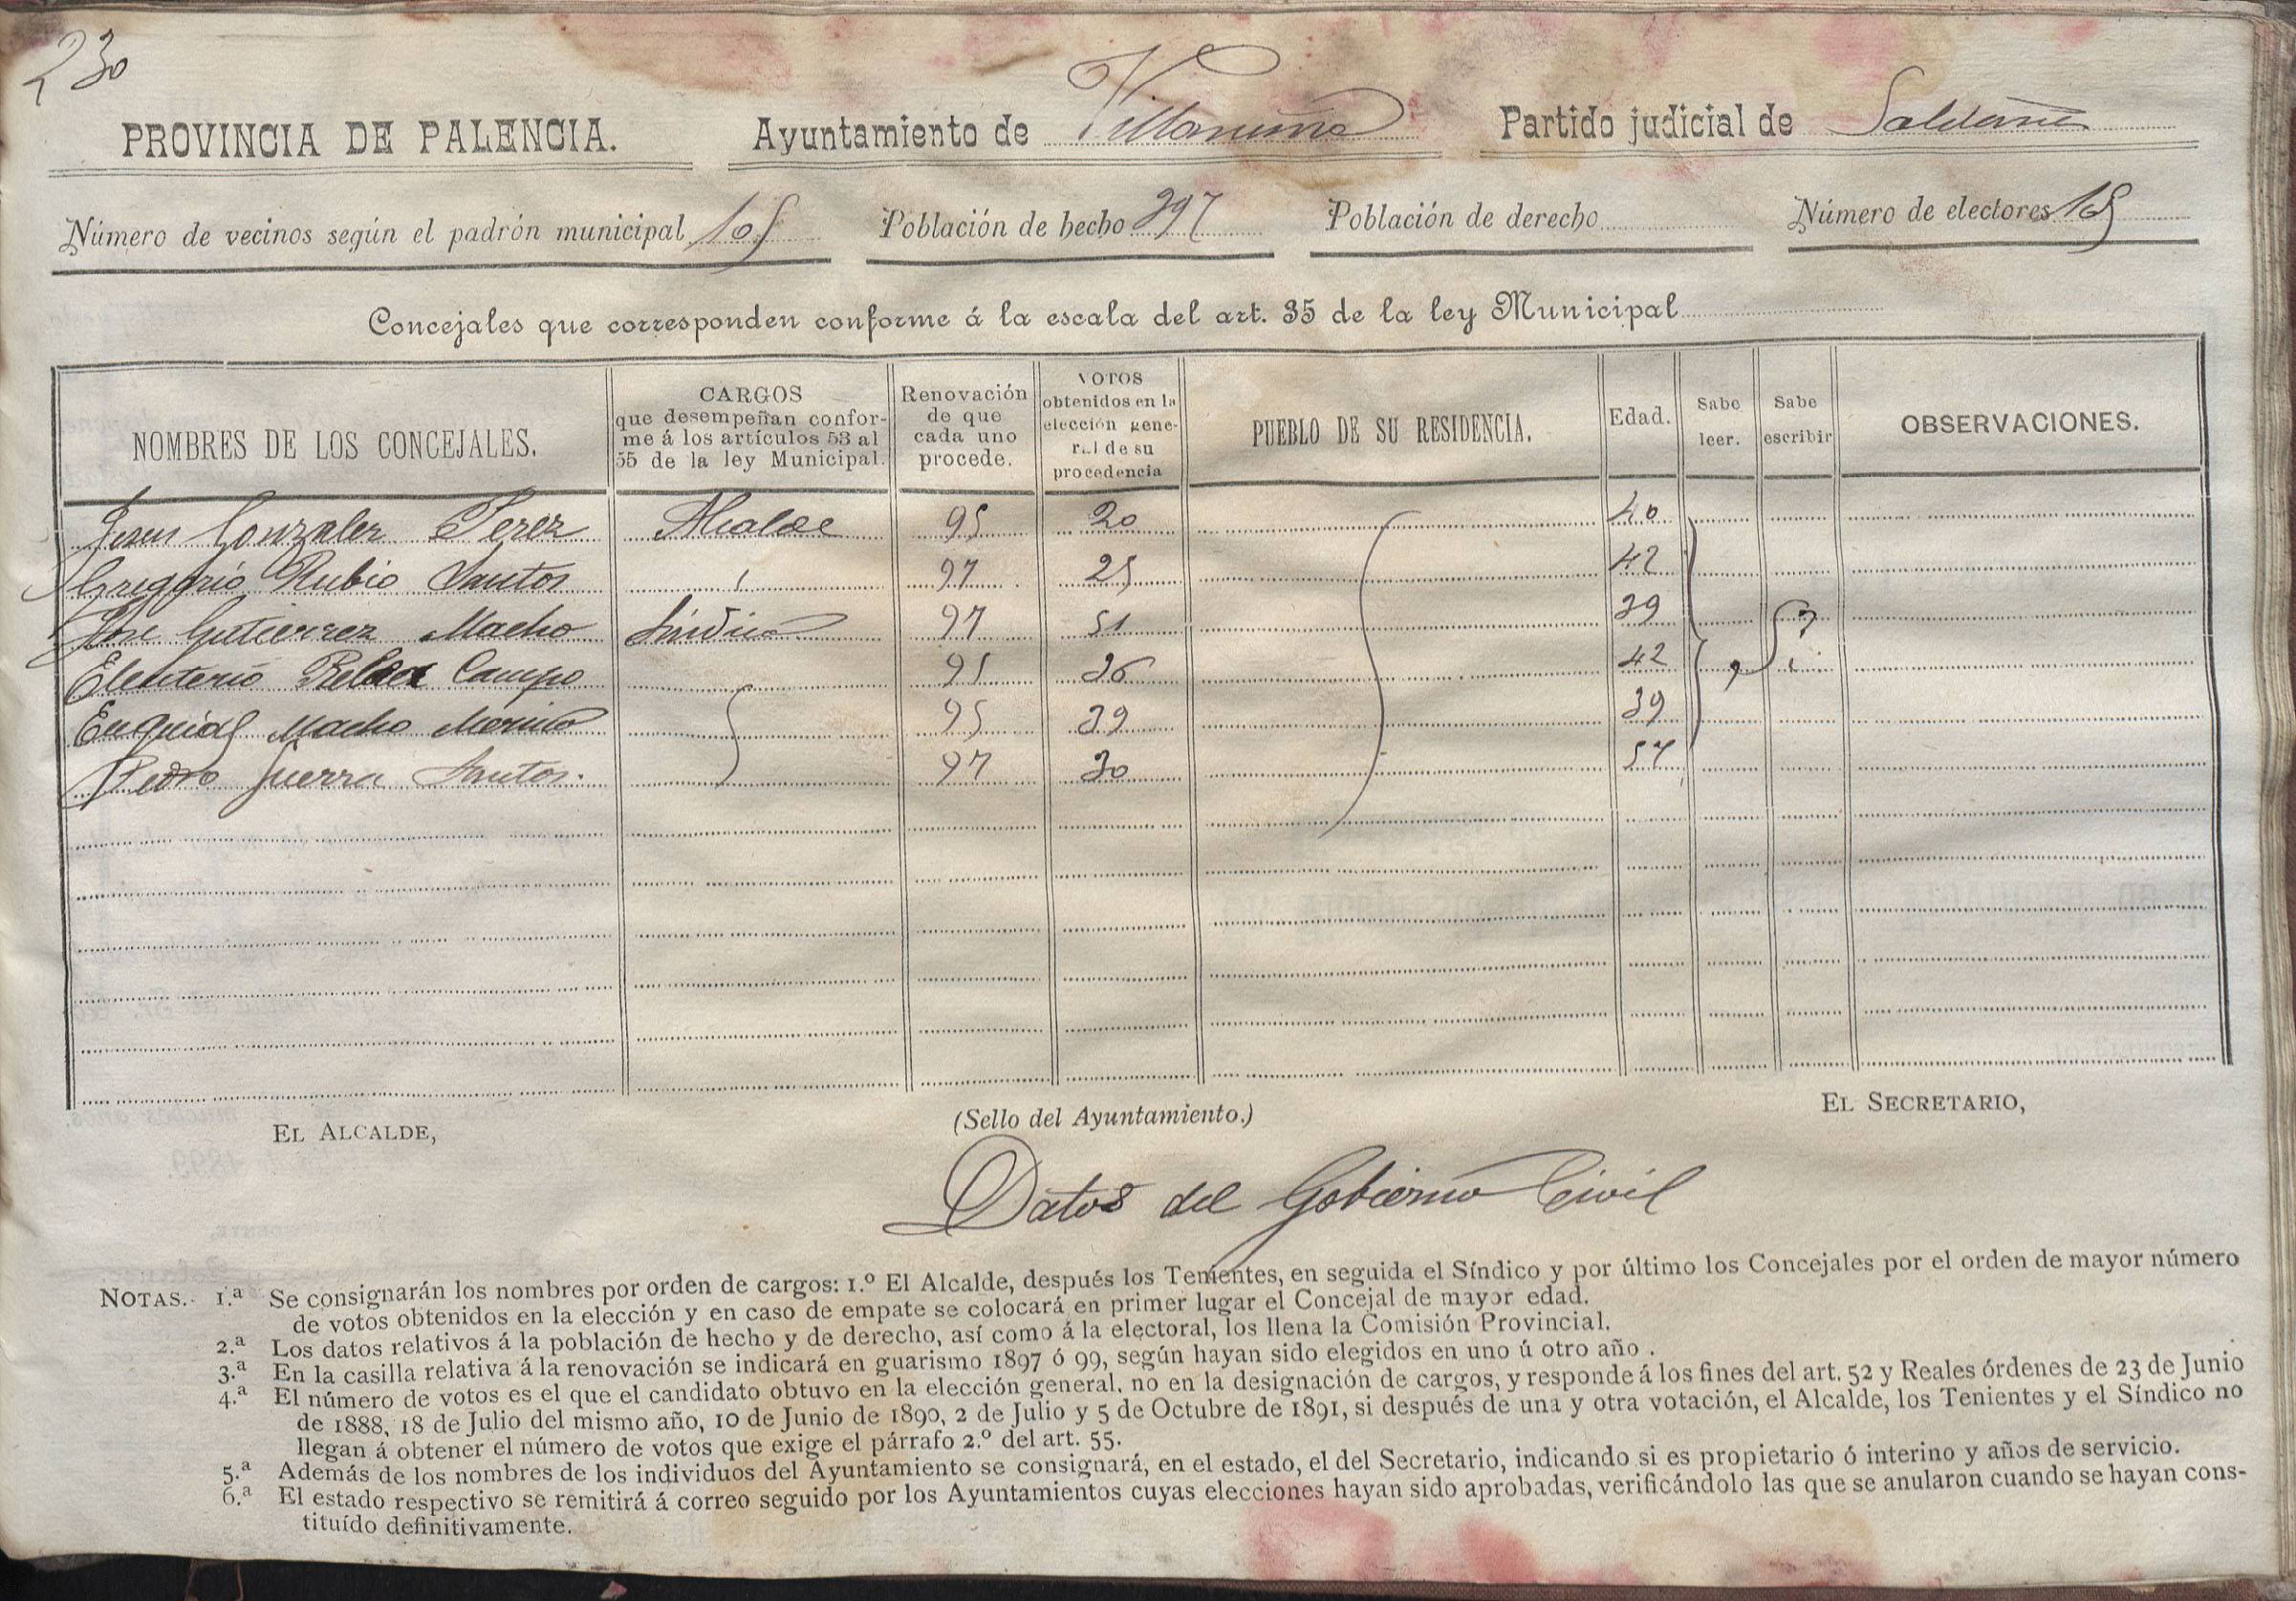 230
PROVINCIA DE PALENCIA. Ayuntamiento de Villanuño Partido judicial de Saldaña
Número de vecinos según el padrón municipal 105 Población de hecho 397 Población de derecho Número de electores 105
Concejales que corresponden conforme á la escala del art. 35 de la ley Municipal
NOMBRES DE LOS CONCEJALES. CARGOS que desempeñan conforme á los artículos 53 al 55 de la ley Municipal. Renovación de que cada uno procede. VOTOS obtenidos en la elección general de su procedencia PUEBLO DE SU RESIDENCIA. Edad. Sabe leer. Sabe escribir OBSERVACIONES.
Jesus Gonzalez Perez Alcalde 95 20 40
Gregorio Rubio Santos 97 25 42
Jose Gutierrez Macho Sindico 97 51 39
Eleuterio Campo 95 36 42
Macho Merino 95 39 39
Pedro Guerra Santos. 97 30 57
EL ALCALDE, (Sello del Ayuntamiento.) EL SECRETARIO,
Datos del Gobierno Civil
NOTAS. 1.ª Se consignarán los nombres por orden de cargos: 1.º El Alcalde, después los Tenientes, en seguida el Síndico y por último los Concejales por el orden de mayor número
de votos obtenidos en la elección y en caso de empate se colocará en primer lugar el Concejal de mayor edad.
2.ª Los datos relativos á la población de hecho y de derecho, así como á la electoral, los llena la Comisión Provincial.
3.ª En la casilla relativa á la renovación se indicará en guarismo 1897 ó 99, según hayan sido elegidos en uno ú otro año.
4.ª El número de votos es el que el candidato obtuvo en la elección general, no en la designación de cargos, y responde á los fines del art. 52 y Reales órdenes de 23 de Junio
de 1888, 18 de Julio del mismo año, 10 de Junio de 1890, 2 de Julio y 5 de Octubre de 1891, si después de una y otra votación, el Alcalde, los Tenientes y el Síndico no
llegan á obtener el número de votos que exige el párrafo 2.º del art. 55.
5.ª Además de los nombres de los individuos del Ayuntamiento se consignará, en el estado, el del Secretario, indicando si es propietario ó interino y años de servicio.
6.ª El estado respectivo se remitirá á correo seguido por los Ayuntamientos cuyas elecciones hayan sido aprobadas, verificándolo las que se anularon cuando se hayan cons-
tituído definitivamente.